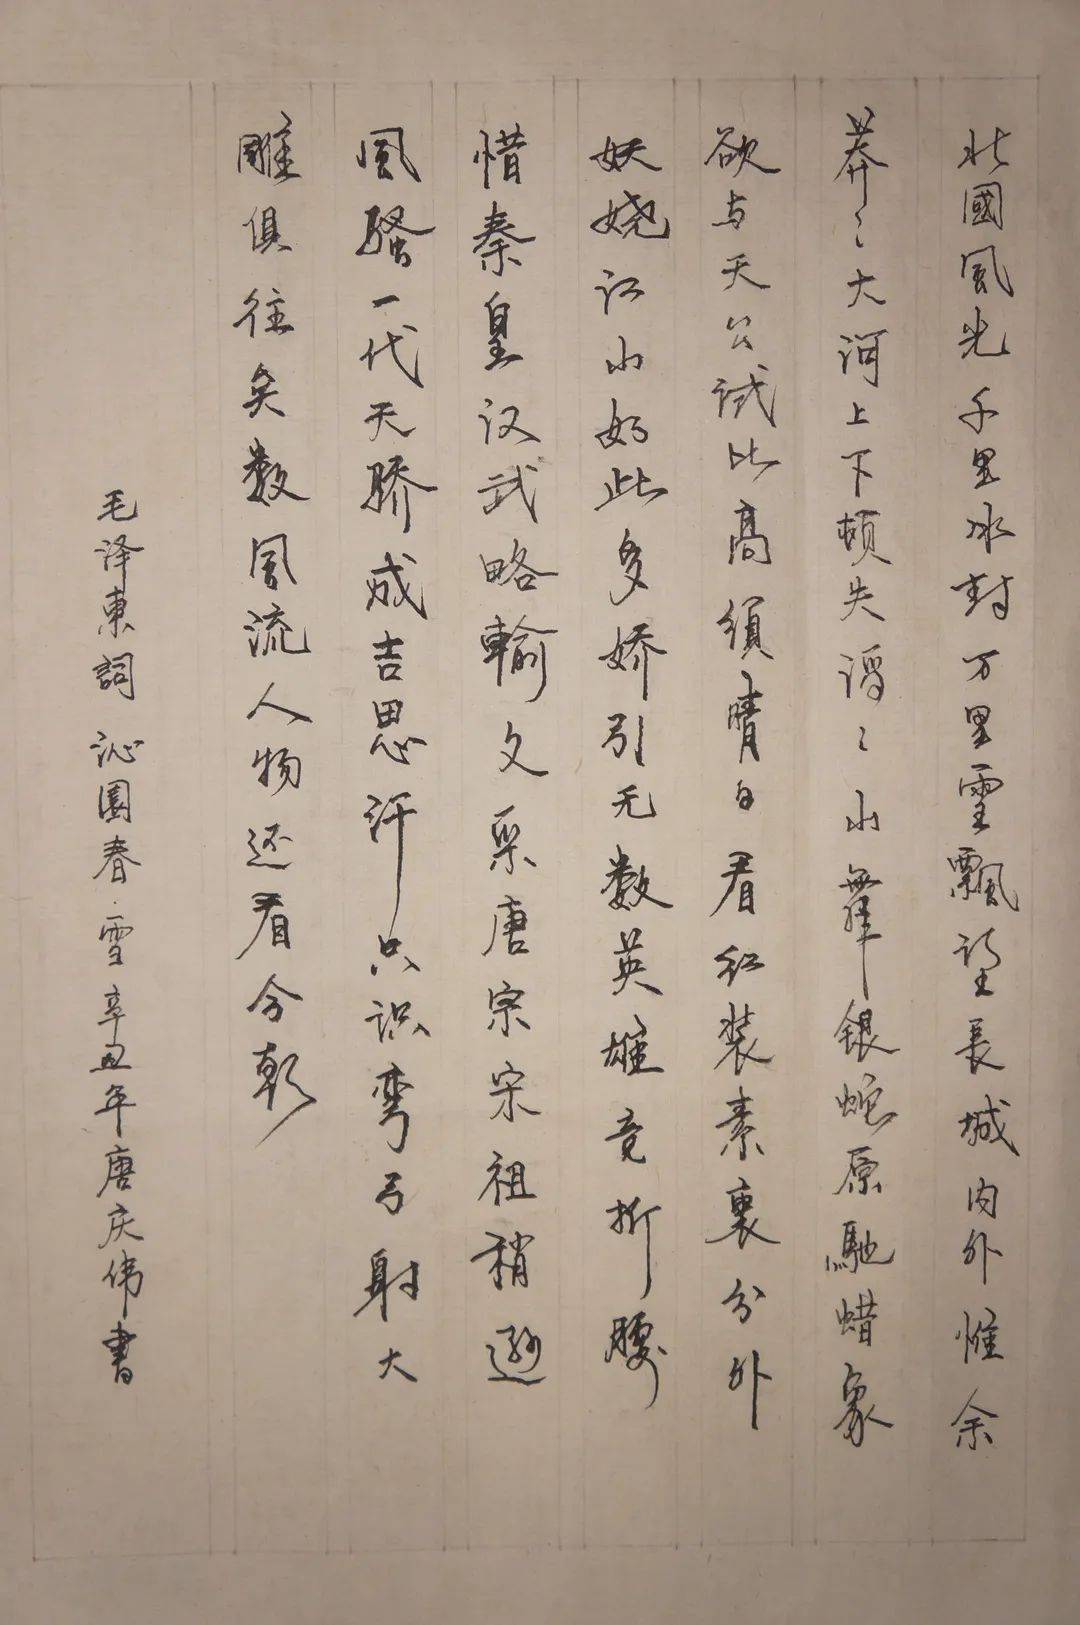 北國風光千里冰封万里雪飄望長城内外惟余
莽〻大河上下頓失滔〻山舞銀蛇原馳蜡象
欲与天公試比高須晴日看红装素裹分外
妖娆江山如此多娇引无数英雄竞折腰
惜秦皇汉武略輸文采唐宗宋祖稍遜
風骚一代天骄成吉思汗只识弯弓射大
雕俱往矣数風流人物还看今朝
毛泽東詞沁園春·雪辛丑年唐庆伟書